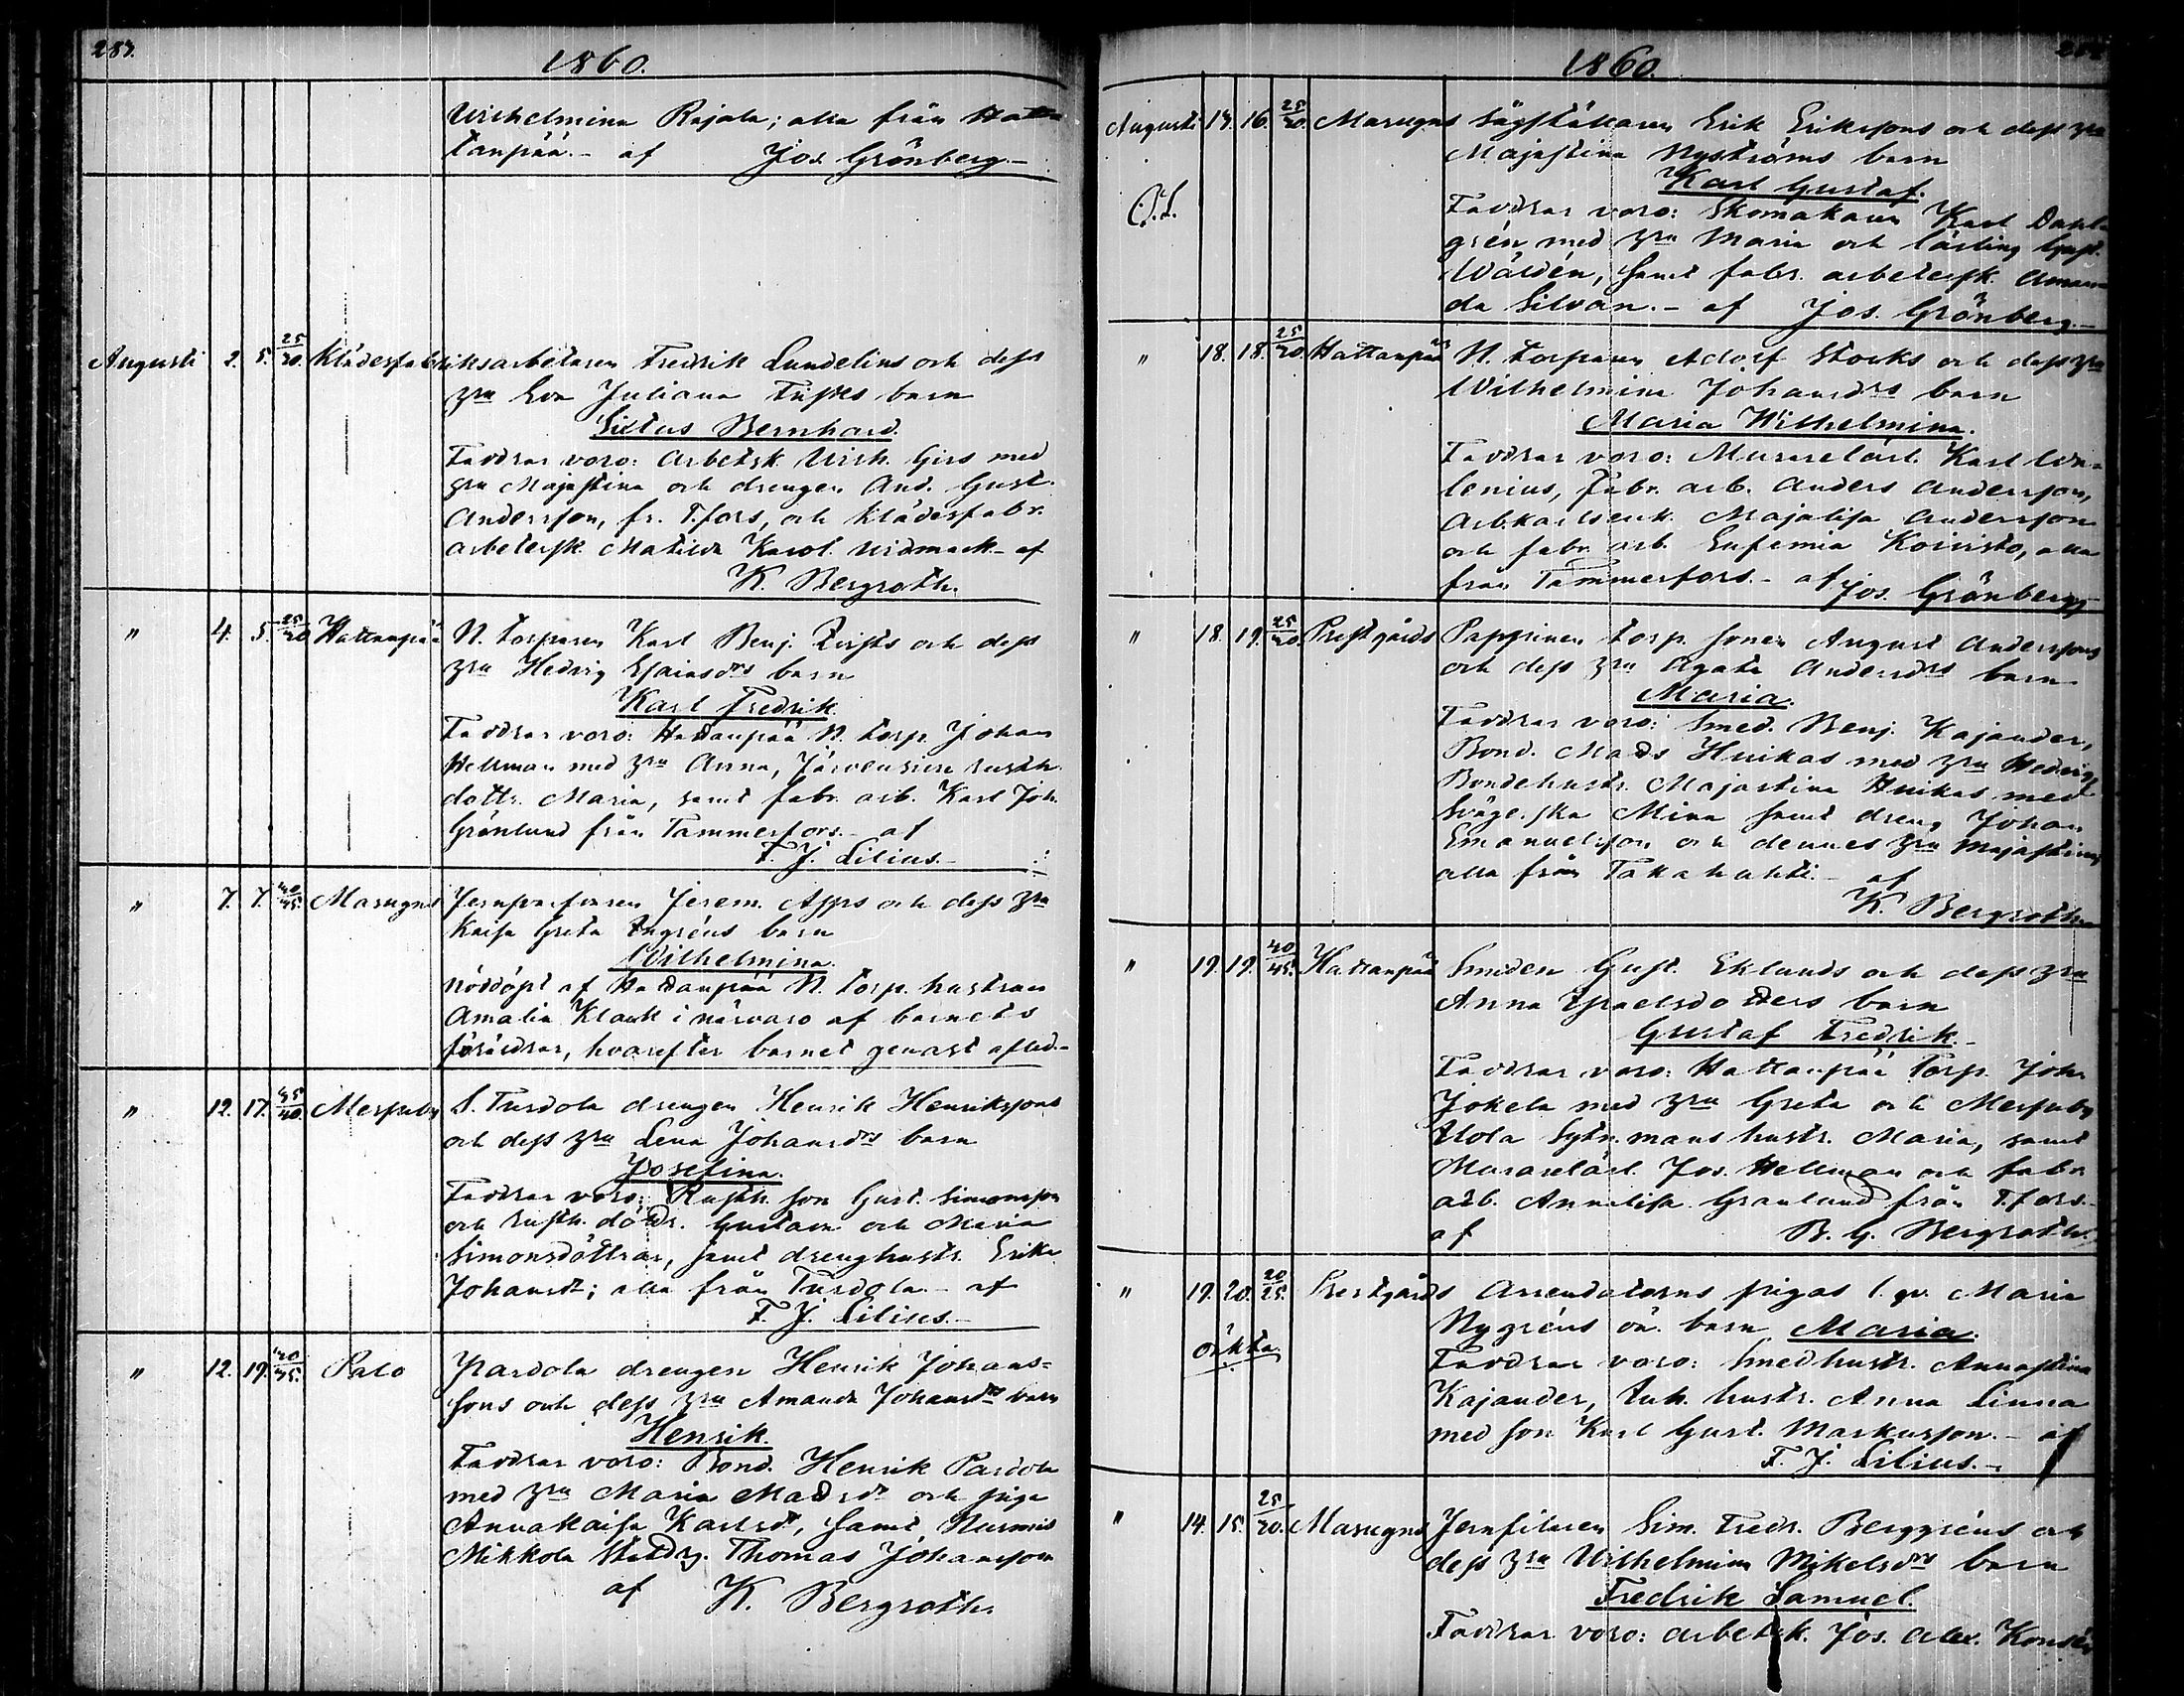 287.
1860.
Wilhelmina Rajala; alla från Hatta
tanpää.- af Jos. Grönberg.-
Augusti 2. 5. 25/30. Klädesfabriksarbetaren Fredrik Lundelius och dess
hru Eva Juliana barn
Bernhard.
Faddrar voro: Arbetsk. Wilh. Girs med
hru Majastina och drengen And. Gust.
Andersson, fr. T.fors, och Klädesfabr.
arbetersk. Matilda Karol. Widmark.- af
K. Bergroth.
" 4. 5. 25/30 Hattanpää N. torparen Karl Benj. och dess
hru Hedvig Esaiasdrs barn
Karl Fredrik.
Faddrar voro: Hattanpää N. torp. Johan
Hellman med hru Anna, rusth.
dottr. Maria, samt fabr. arb. Karl Joh.
Grönlund från Tammerfors.- af
F. J. Lilius.-
" 7. 7. 40/45. Masugns Jerem. och dess hru
Kaisa Greta barn
Wilhelmina.
Nöddöpt af Hattanpää N. torp. hustrun
Amalia Klack i närvaro af barnets
föräldrar, hvarefter barnet genast afled.-
" 12. 17. 35/40. Messuby S. Turdola drengen Henrik Henrikssons
och dess hru Lena Johansdrs barn
Josefina.
Faddrar voro: Rusth. son Gust. Simonsson
och rusth. döttr. Gustava och Maria
Simonsdöttrar, samt drenghustr. Erika
Johansdr; alla från Turdola.- af
F. J. Lilius.-
" 12. 19. 40/45. Palo Pardola drengen Henrik Johans-
sons och dess hru Amanda Johansdrs barn
Henrik.
Faddrar voro: Bond. Henrik Pardola
med hru Maria Madsdr och piga
Annakaisa Karlsdr, samt Nurmis
Mikkola Thomas Johansson
af K. Bergroth.
1860.
Augusti 14. 16. 25/30. Masugns Erik Erikssons och dess hru
Majastina Nyströms barn
Karl Gustaf.
Faddrar voro: Skomakaren Karl Dahl-
grén med hru Maria och lärling Gust.
Wäldén, samt fabr. arbetersk. Aman-
da Silvan.- af Jos. Grönberg.-
" 18. 18. 25/30. Hattanpää N. torparen Adolf Stocks och dess hru
Wilhelmina Johansdrs barn
Maria Wilhelmina.
Faddrar voro: Murarelärl. Karl Wa-
lenius, fabr. arb. Anders Andersson,
Arbkarlsenk. Majalisa Andersson
och fabr. arb. Eufemia Koivisto, alla
från Tammerfors.- af Jos. Grönberg
" 18. 19. 25/30. Prestgårds Pappinen torp. sonen August Anderssons
och dess hru Agata Andersdrs barn
Maria.
Faddrar voro: Smed. Benj. Kajander,
Bond. Mads Huikas med hru Hedvig,
Bondehustr. Majastina Huikas med
Svägerska Mina samt dreng Johan
Emanuelsson och dennes hru Majastina
alla från Takahuhti.- af
K. Bergroth.
" 19. 19. 40/45. Hattanpää Smeden Gust. Eklunds och dess hru
Anna Israelsdotters barn
Gustaf Fredrik.-
Faddrar voro: Hattanpää Torp. Joh.
Jokela med hru Greta och Messuby
Uola Sytn.mans hustr. Maria, samt
Murarelärl. Jos. Hellman och fabr.
arb. Annalisa Granlund från T.fors.-
af B. G. Bergroth.
" 19. 20. 20/25. Prestgårds Arrendatorns pigas l. qv. Maria
Nygréns oä. barn Maria.
oäkta.
Faddrar voro: Smedhustr. Annastina
Kajander, Inh. hustr. Anna Linna
med son Karl Gust. Markusson.- af
F. J. Lilius.-
" 14. 15. 25/30. Masugns Jernfilaren Sim. Fredr. Berggréns och
dess hru Wilhelmina Mikelsdrs barn
Fredrik Samuel.
Faddrar voro: arbetsk. Jos. Alex.